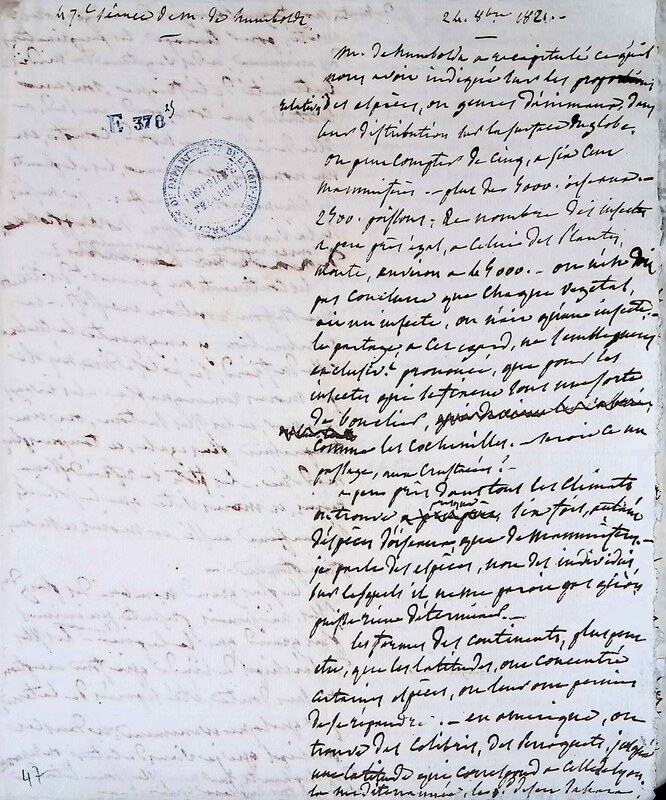 47.e séance de m. de humboldt
24. 8bre 1821.-
m. de humboldt a recapitulé ce qu'il
nous avoit indiqué sur les proportions
relatives des espèces, ou genres d'animaux, dans
leur distribution sur la surface du globe.
on peut compter de cinq, a six cent
mammifères - plus de 4000. oiseaux. -
2400. poissons; le nombre des insectes
a peu près égal, a celui des Plantes,
monte, environ a 44000. - on ne doit
pas conclure que chaque vegetal,
ait un insecte, ou n'ait qu'un insecte. -
le partage, a cet egard, ne semble gueres
exclusivt. prononcé, que pour les
insectes qui se tiennent sous une sorte
de bouclier,
comme les cochenilles. - seroit ce un
passage, aux Crustacées? -
a peu près dans tous les climats
on trouve presque six fois, autant
d'espèces d'oiseaux que de mammifères. -
je parle des espèces, non des individus,
sur lesquels il ne me paroit pas qu'on
puisse rien déterminer. -
les formes des continents, plus peut
etre, que les latitudes, ont concentré
certaines espèces, ou leur ont permis
de se repandre. - en amerique, on
trouve des Colibris, des Perroquets, jusqu'à
une latitude qui correspond a celle de Lyon,
la mediterrannée, le desert Sahara,
E 378
47